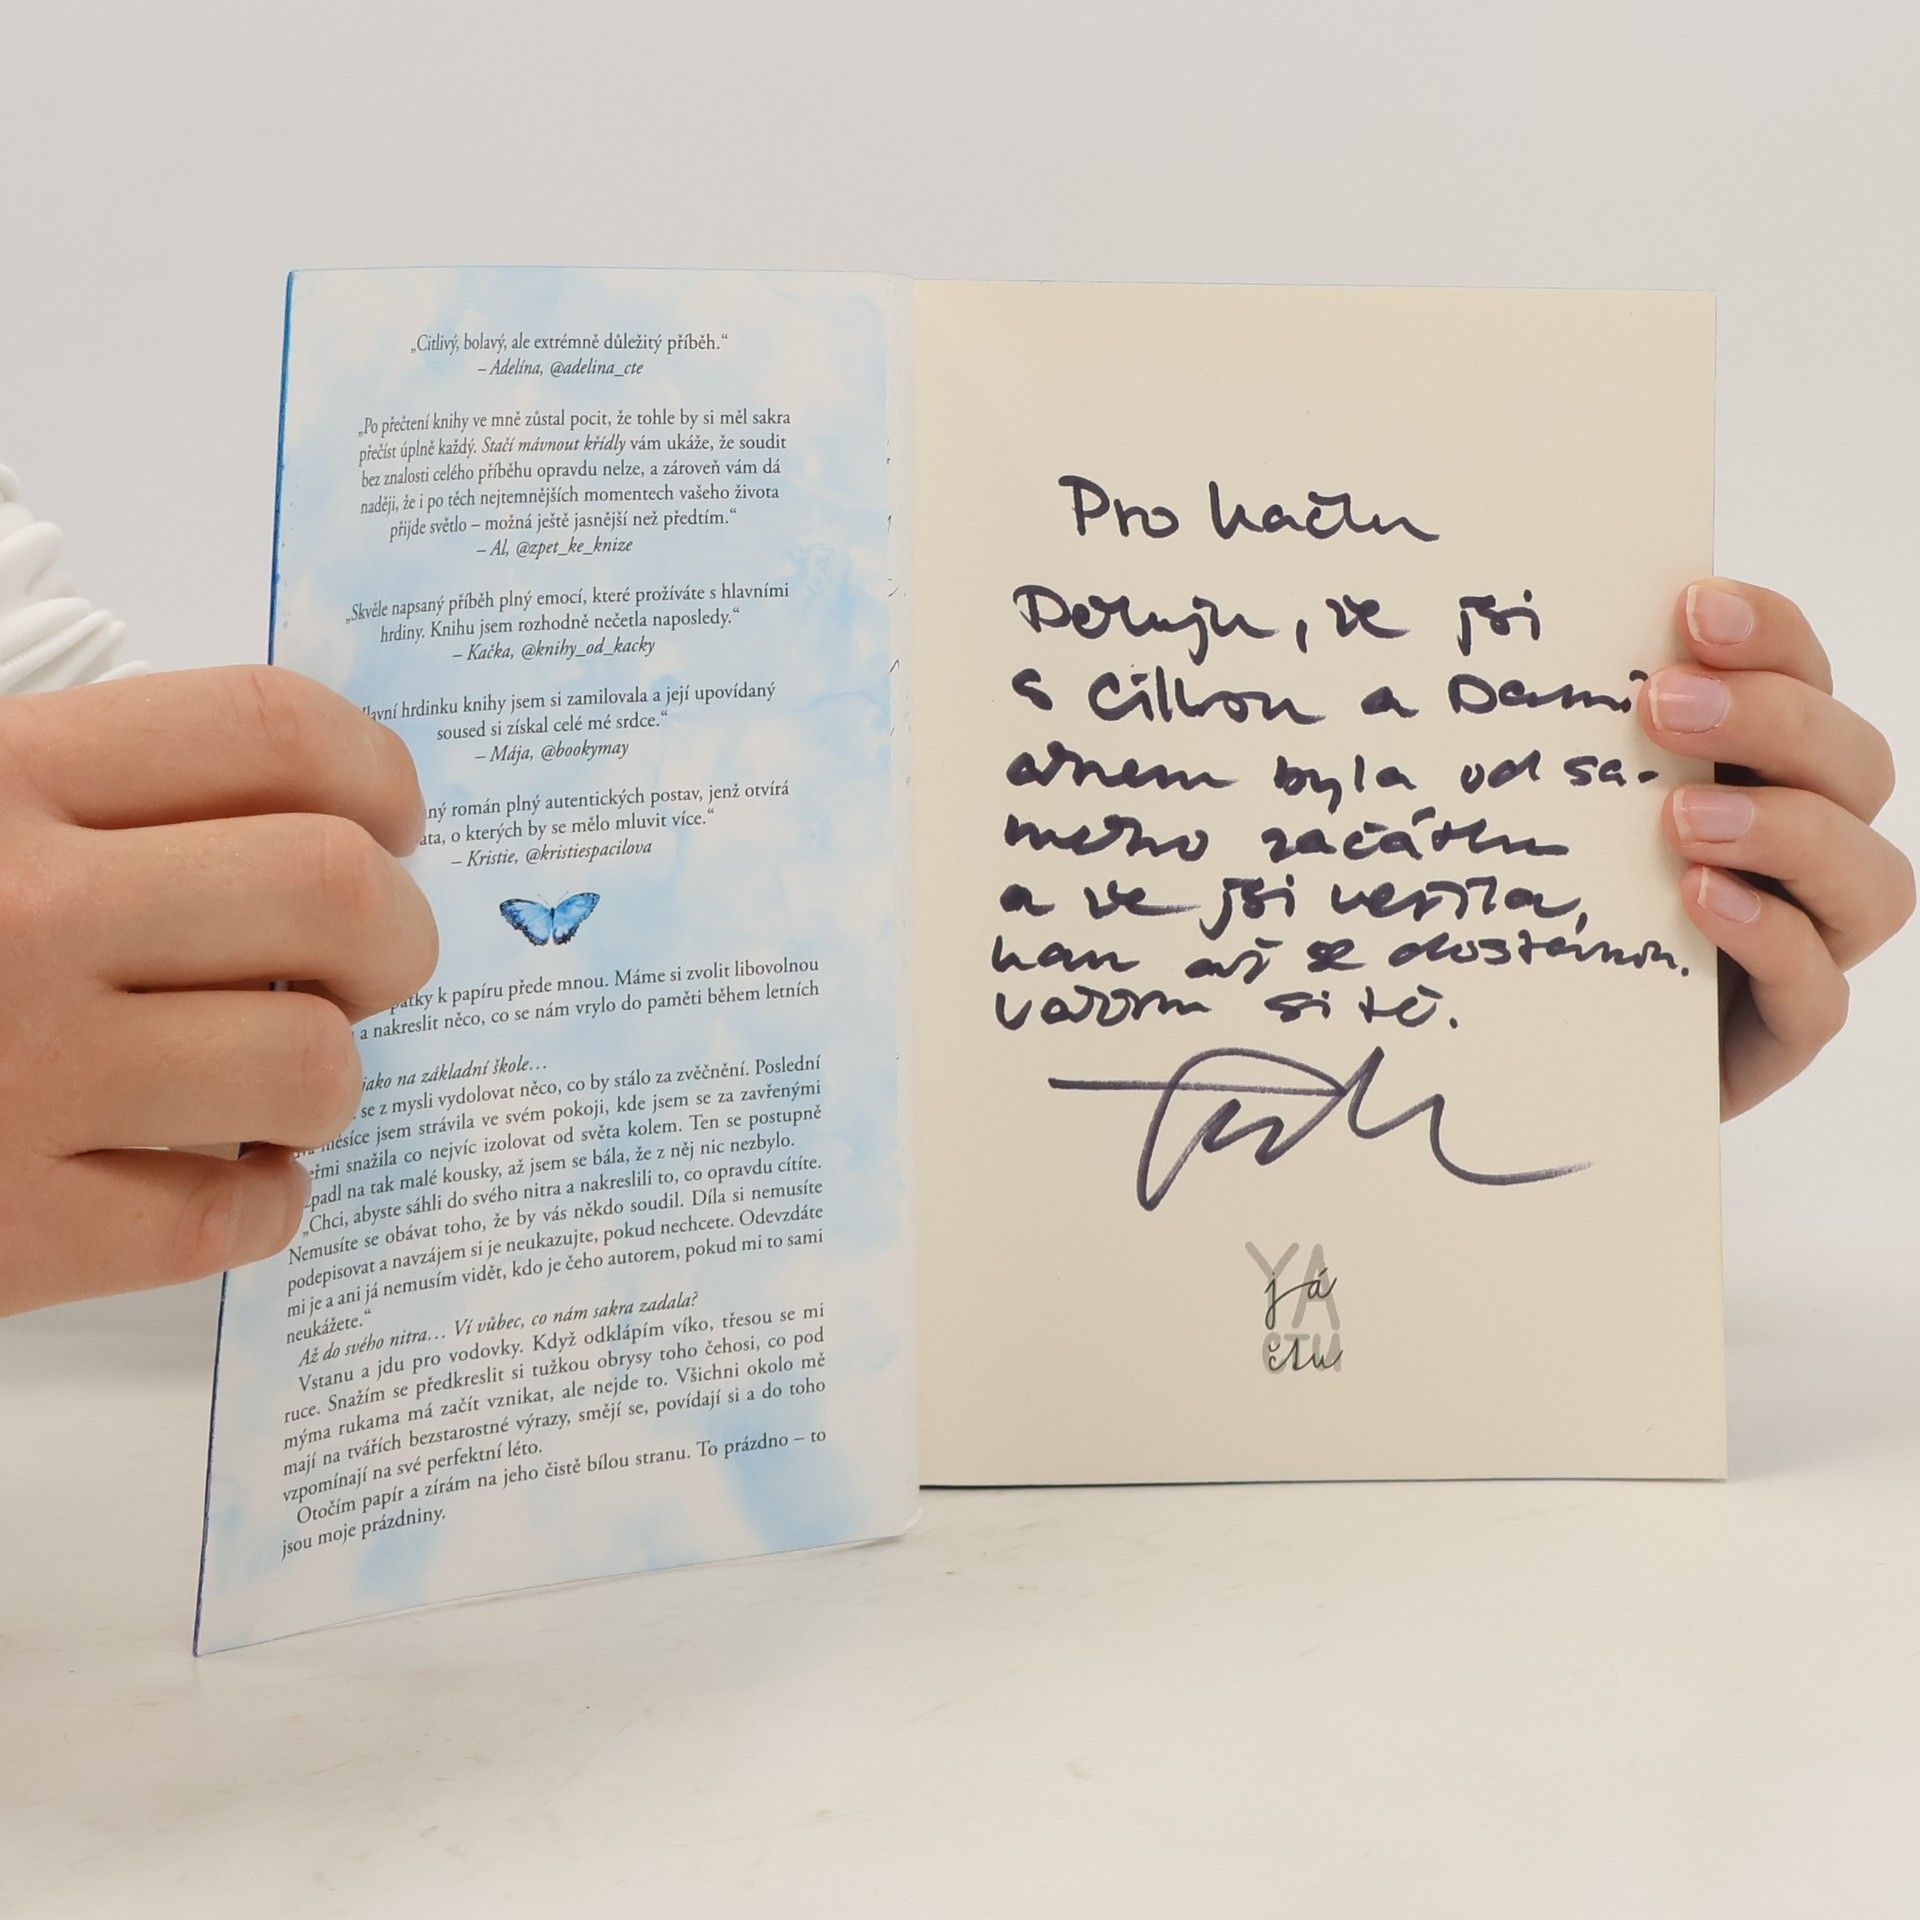 „Citlivý, bolavý, ale extrémně důležitý příběh.“
– Adelína, @adelina_cte
„Po přečtení knihy ve mně zůstal pocit, že tohle by si měl sakra
přečíst úplně každý. Stačí mávnout křídly vám ukáže, že soudit
bez znalosti celého příběhu opravdu nelze, a zároveň vám dá
naději, že i po těch nejtemnějších momentech vašeho života
přijde světlo – možná ještě jasnější než předtím.“
– Al, @zpet_ke_knize
„Skvěle napsaný příběh plný emocí, které prožíváte s hlavními
hrdiny. Knihu jsem rozhodně nečetla naposledy.“
– Kačka, @knihy_od_kacky
hrdinku knihy jsem si zamilovala a její upovídaný
soused si získal celé mé srdce.“
– Mája, @bookymay
román plný autentických postav, jenž otvírá
o kterých by se mělo mluvit více.“
– Kristie, @kristiespacilova
k papíru přede mnou. Máme si zvolit libovolnou
a nakreslit něco, co se nám vrylo do paměti během letních
jako na základní škole…
se z mysli vydolovat něco, co by stálo za zvěčnění. Poslední
měsíce jsem strávila ve svém pokoji, kde jsem se za zavřenými
snažila co nejvíc izolovat od světa kolem. Ten se postupně
na tak malé kousky, až jsem se bála, že z něj nic nezbylo.
„Chci, abyste sáhli do svého nitra a nakreslili to, co opravdu cítíte.
Nemusíte se obávat toho, že by vás někdo soudil. Díla si nemusíte
podepisovat a navzájem si je neukazujte, pokud nechcete. Odevzdáte
mi je a ani já nemusím vidět, kdo je čeho autorem, pokud mi to sami
neukážete.“
Až do svého nitra… Ví vůbec, co nám sakra zadala?
Vstanu a jdu pro vodovky. Když odklápím víko, třesou se mi
ruce. Snažím se předkreslit si tužkou obrysy toho čehosi, co pod
mýma rukama má začít vznikat, ale nejde to. Všichni okolo mě
mají na tvářích bezstarostné výrazy, smějí se, povídají si a do toho
vzpomínají na své perfektní léto.
Otočím papír a zírám na jeho čistě bílou stranu. To prázdno – to
jsou moje prázdniny.
Pro Kačku
Děkuju, že jsi
s Cilkou a Dami
ánem byla od sa-
mého začátku
a že jsi věřila,
kam až se dostanou.
Vážím si tě.
YA
já
čtu